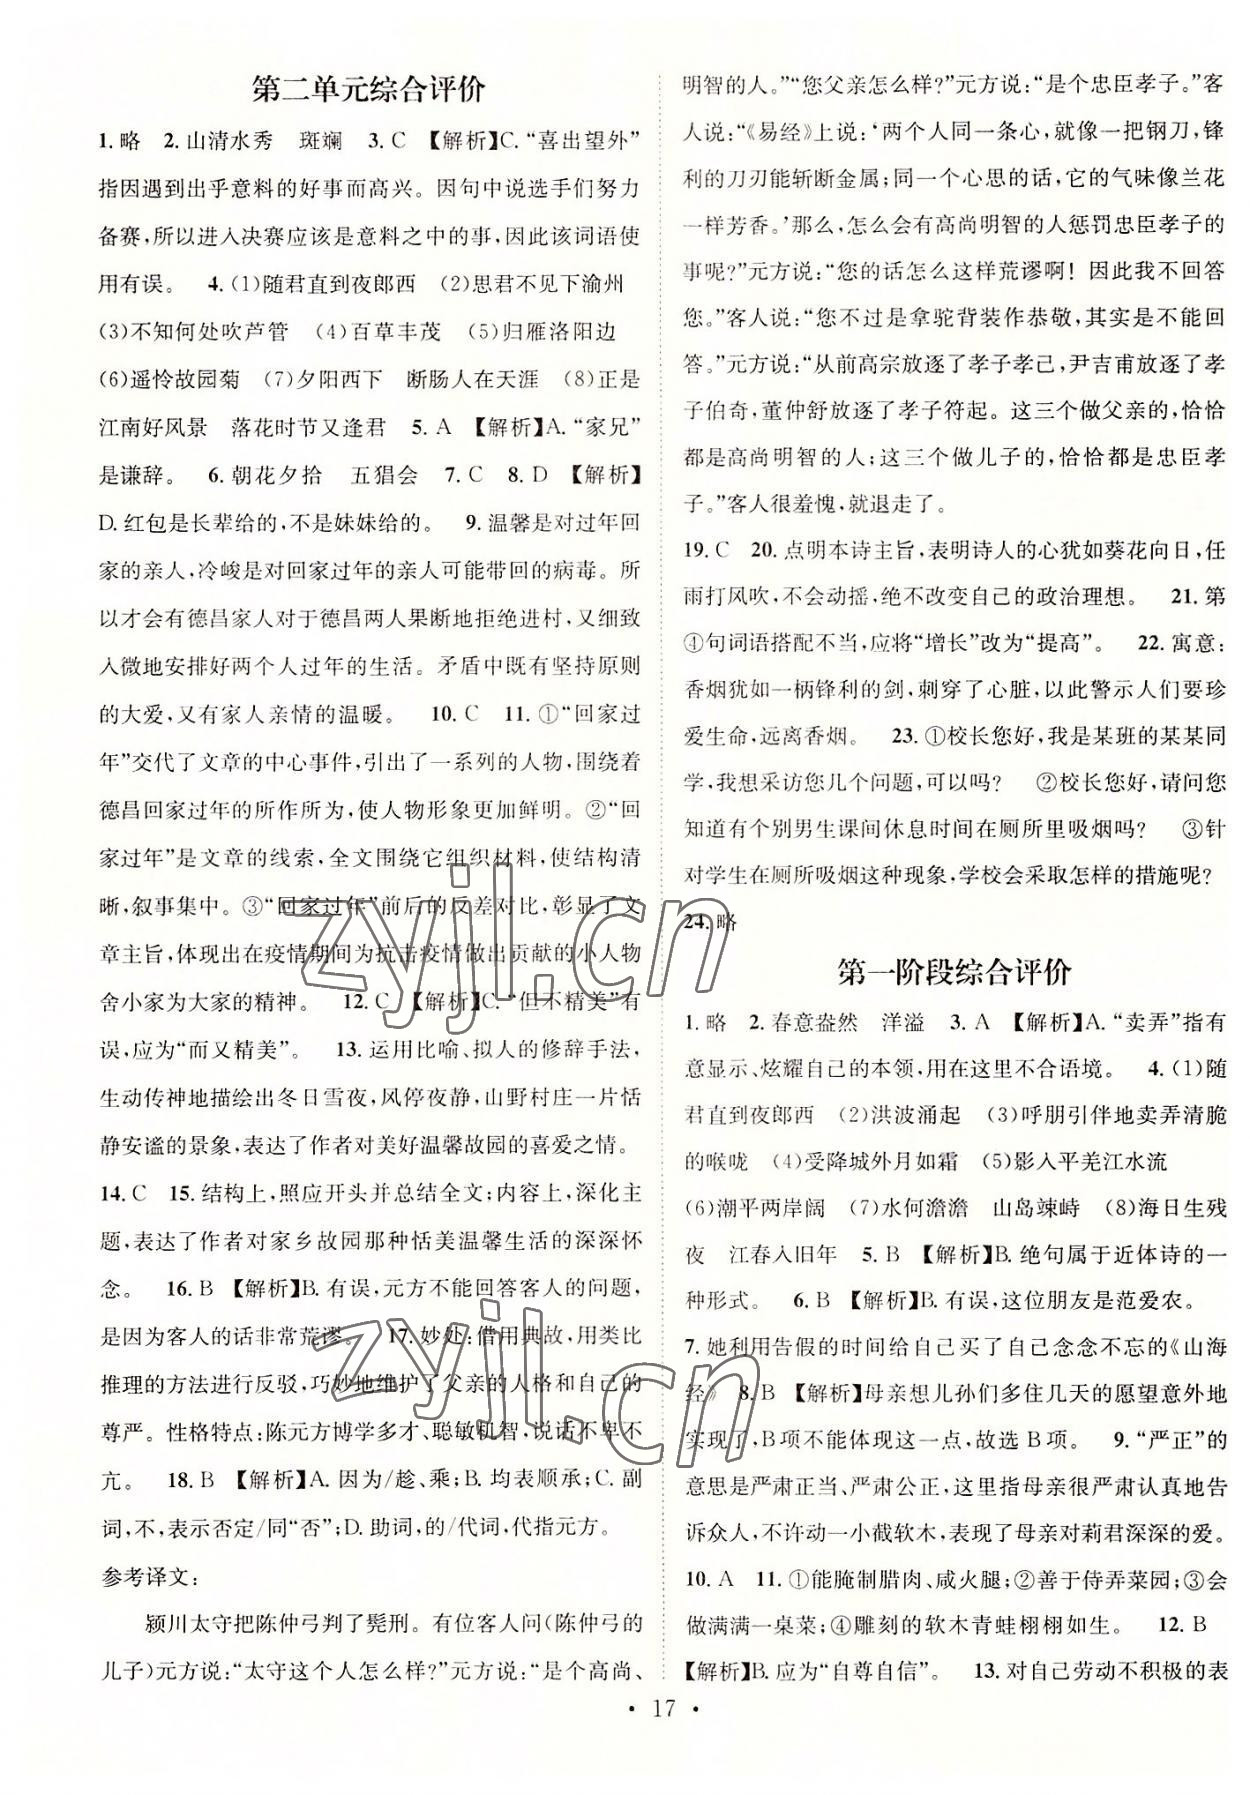 第二单元综合评价
1.略　2.山清水秀　斑斓　3.C　【解析】C.“喜出望外”
指因遇到出乎意料的好事而高兴。因句中说选手们努力
备赛,所以进入决赛应该是意料之中的事,因此该词语使
用有误。　4.(1)随君直到夜郎西　(2)思君不见下渝州
(3)不知何处吹芦管　(4)百草丰茂　(5)归雁洛阳边
(6)遥怜故园菊　(7)夕阳西下　断肠人在天涯　(8)正是
江南好风景　落花时节又逢君　5.A　【解析】A.“家兄”
是谦辞。　6.朝花夕拾　五猖会　7.C　8.D　【解析】
D.红包是长辈给的,不是妹妹给的。　9.温馨是对过年回
家的亲人,冷峻是对回家过年的亲人可能带回的病毒。所
以才会有德昌家人对于德昌两人果断地拒绝进村,又细致
入微地安排好两个人过年的生活。矛盾中既有坚持原则
的大爱,又有家人亲情的温暖。　10.C　11.①“回家过
年”交代了文章的中心事件,引出了一系列的人物,围绕着
德昌回家过年的所作所为,使人物形象更加鲜明。②“回
家过年”是文章的线索,全文围绕它组织材料,使结构清
晰,叙事集中。③“回家过年”前后的反差对比,彰显了文
章主旨,体现出在疫情期间为抗击疫情做出贡献的小人物
舍小家为大家的精神。　12.C　【解析】C.“但不精美”有
误,应为“而又精美”。　13.运用比喻、拟人的修辞手法,
生动传神地描绘出冬日雪夜,风停夜静,山野村庄一片恬
静安谧的景象,表达了作者对美好温馨故园的喜爱之情。
14.C　15.结构上,照应开头并总结全文;内容上,深化主
题,表达了作者对家乡故园那种恬美温馨生活的深深怀
念。　16.B　【解析】B.有误,元方不能回答客人的问题,
是因为客人的话非常荒谬。　17.妙处:借用典故,用类比
推理的方法进行反驳,巧妙地维护了父亲的人格和自己的
尊严。性格特点:陈元方博学多才、聪敏机智,说话不卑不
亢。　18.B　【解析】A.因为/趁、乘;B.均表顺承;C.副
词,不,表示否定/同“否”;D.助词,的/代词,代指元方。
参考译文:
颍川太守把陈仲弓判了髡刑。有位客人问(陈仲弓的
儿子)元方说:“太守这个人怎么样?”元方说:“是个高尚、
明智的人。”“您父亲怎么样?”元方说:“是个忠臣孝子。”客
人说:“《易经》上说:‘两个人同一条心,就像一把钢刀,锋
利的刀刃能斩断金属;同一个心思的话,它的气味像兰花
一样芳香。’那么,怎么会有高尚明智的人惩罚忠臣孝子的
事呢?”元方说:“您的话怎么这样荒谬啊!因此我不回答
您。”客人说:“您不过是拿驼背装作恭敬,其实是不能回
答。”元方说:“从前高宗放逐了孝子孝己,尹吉甫放逐了孝
子伯奇,董仲舒放逐了孝子符起。这三个做父亲的,恰恰
都是高尚明智的人;这三个做儿子的,恰恰都是忠臣孝
子。”客人很羞愧,就退走了。
19.C　20.点明本诗主旨,表明诗人的心犹如葵花向日,任
雨打风吹,不会动摇,绝不改变自己的政治理想。　21.第
④句词语搭配不当,应将“增长”改为“提高”。　22.寓意:
香烟犹如一柄锋利的剑,刺穿了心脏,以此警示人们要珍
爱生命,远离香烟。　23.①校长您好,我是某班的某某同
学,我想采访您几个问题,可以吗?　②校长您好,请问您
知道有个别男生课间休息时间在厕所里吸烟吗?　③针
对学生在厕所吸烟这种现象,学校会采取怎样的措施呢?
24.略
第一阶段综合评价
1.略　2.春意盎然　洋溢　3.A　【解析】A.“卖弄”指有
意显示、炫耀自己的本领,用在这里不合语境。　4.(1)随
君直到夜郎西　(2)洪波涌起　(3)呼朋引伴地卖弄清脆
的喉咙　(4)受降城外月如霜　(5)影入平羌江水流
(6)潮平两岸阔　(7)水何澹澹　山岛竦峙　(8)海日生残
夜　江春入旧年　5.B　【解析】B.绝句属于近体诗的一
种形式。　6.B　【解析】B.有误,这位朋友是范爱农。
7.她利用告假的时间给自己买了自己念念不忘的《山海
经》　8.B　【解析】母亲想儿孙们多住几天的愿望意外地
实现了,B项不能体现这一点,故选B项。　9.“严正”的
意思是严肃正当、严肃公正,这里指母亲很严肃认真地告
诉众人,不许动一小截软木,表现了母亲对莉君深深的爱。
10.A　11.①能腌制腊肉、咸火腿;②善于侍弄菜园;③会
做满满一桌菜;④雕刻的软木青蛙栩栩如生。　12.B
【解析】B.应为“自尊自信”。　13.对自己劳动不积极的表
• 17 •
zyjl.cn
zyjl.cn